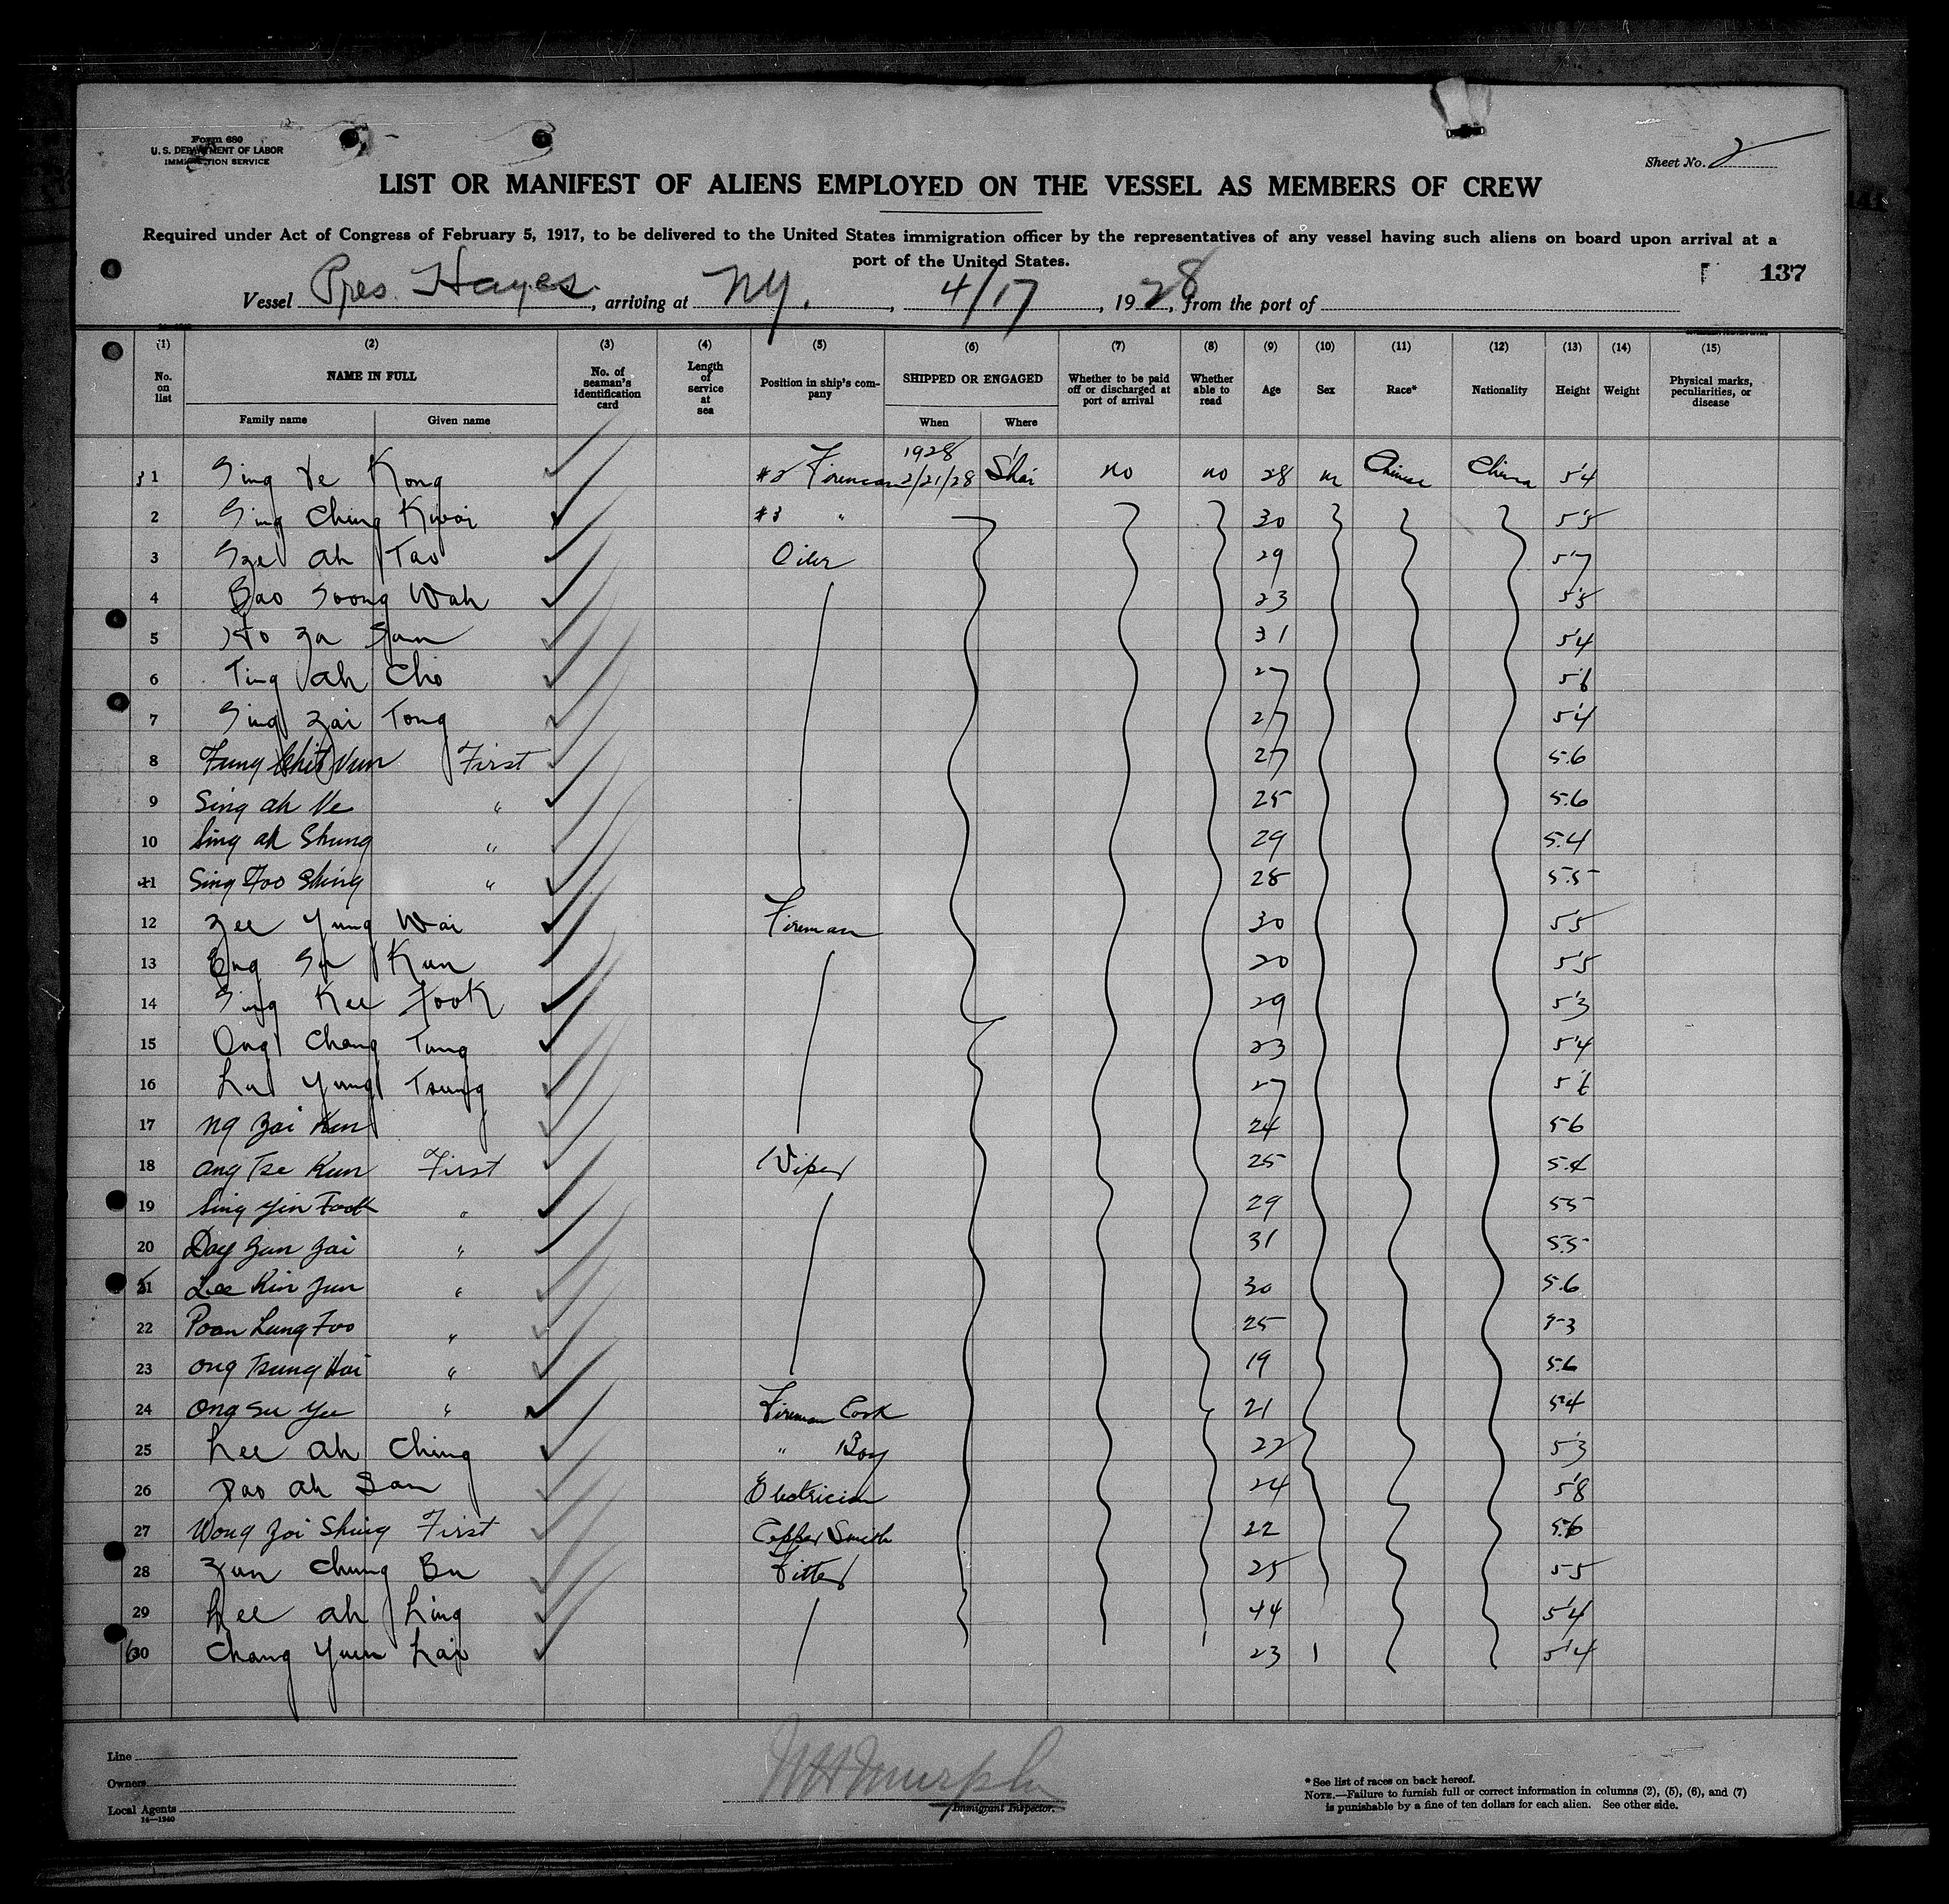 Form 680
U. S. DEPARTMENT OF LABOR
IMMIGRATION SERVICE
Sheet No. 2
LIST OR MANIFEST OF ALIENS EMPLOYED ON THE VESSEL AS MEMBERS OF CREW
Required under Act of Congress of February 5, 1917, to be delivered to the United States immigration officer by the representatives of any vessel having such aliens on board upon arrival at a
port of the United States.
137
Vessel Pres. Hayes, arriving at NY., 4/17, 1928, from the port of
(1) (2) (3) (4) (5) (6) (7) (8) (9) (10) (11) (12) (13) (14) (15)
No. on list NAME IN FULL Family name Given name No. of seaman's identification card Length of service at sea Position in ship's company SHIPPED OR ENGAGED When Where Whether to be paid off or discharged at port of arrival Whether able to read Age Sex Race* Nationality Height Weight Physical marks, peculiarities, or disease
1928
1 Sing Ve Kong #2 Fireman 2/21/28 S'hai no no 28 m Chinese China 5'4
2 Sing Ching Kwai #3 " 30 5'5
3 Sze ah Tao Oiler 29 5'7
4 Bao Soong Wah 23 5'5
5 Ho Za San 31 5'4
6 Ting ah Cho 27 5'6
7 Sing Zai Tong 27 5'4
8 Fung Vun First 27 5.6
9 Sing ah Ve " 25 5.6
10 Sing ah Shung " 29 5.4
11 Sing Foo Shing " 28 5.5
12 Zee Yung Wai Fireman 30 5'5
13 Eng Su Kun 20 5'5
14 Sing Kee Fook 29 5'3
15 Ong Chang Tung 23 5'4
16 Lu Yung Tsung 27 5'6
17 Ng Zai Kun 24 5 6
18 Ong Tse Kun First Wiper 25 5.4
19 Sing Yin Fook " 29 5 5
20 Day Zun Zai " 31 5.5
21 Lee Kin Zun " 30 5.6
22 Poan Lung Foo " 25 5 3
23 Ong Tsung Hai " 19 5.6
24 Ong Su Yee " Fireman Cook 21 5'4
25 Lee ah Ching " Boy 22 5'3
26 Pao ah San Electrician 24 5'8
27 Wong Zoi Shing First Copper Smith 22 5.6
28 Zun Chung Bu Fitter 25 5 5
29 Lee ah Ling 44 5'4
30 Chang Yuen Lai 23 5'4
Line
Owners
Local Agents
14—1940
Immigrant Inspector.
* See list of races on back hereof.
NOTE.—Failure to furnish full or correct information in columns (2), (5), (6), and (7)
is punishable by a fine of ten dollars for each alien. See other side.